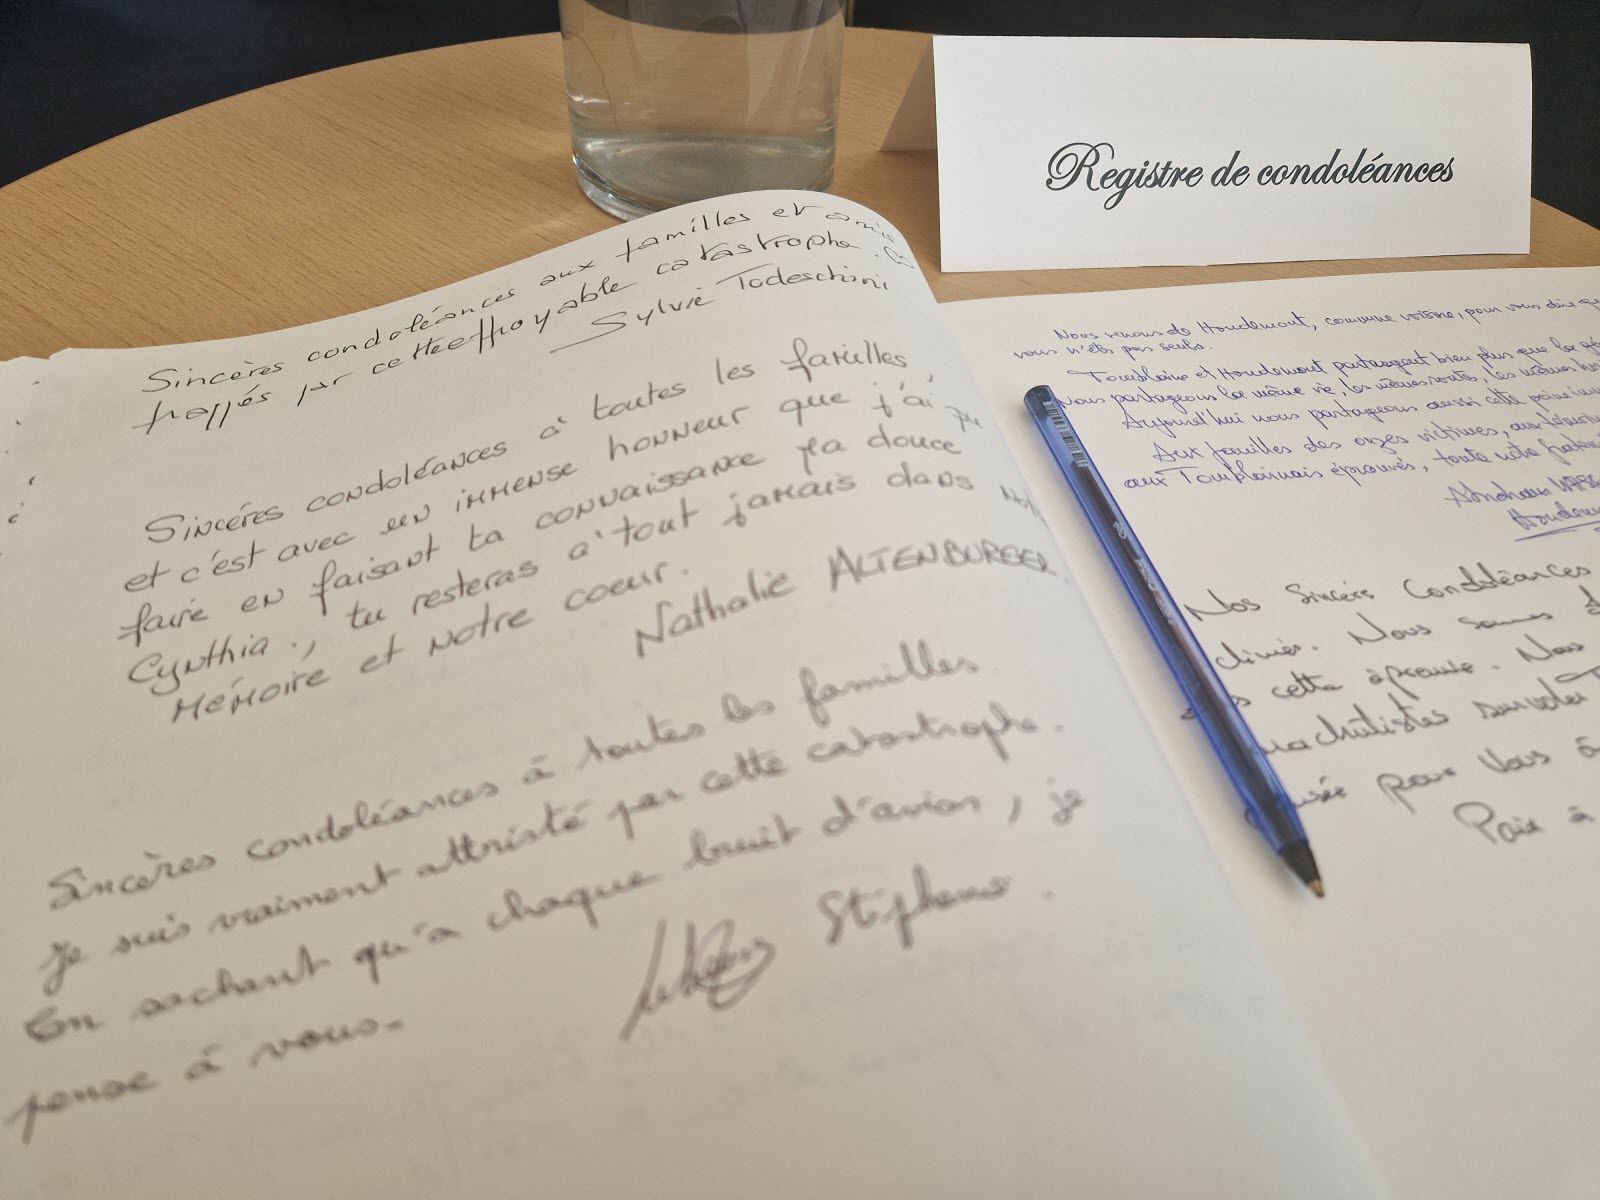 Registre de condoléances
Sincères condoléances aux familles et amis
frappés par cette effroyable catastrophe.
Sylvie Todeschini
Sincéres condoléances à toutes les familles
et c'est avec un immense honneur que j'ai pu
faire en faisant ta connaissance ma douce
Cynthia., tu resteras à tout jamais dans
mémoire et notre coeur.
Nathalie ALTENBURGER.
Sincères condoléances à toutes les familles.
Je suis vraiment attristé par cette catastrophe.
En sachant qu'à chaque bruit d'avion, je
pense à vous.
Stéphane.
Nous venons de Houdemont, commune voisine, pour vous dire que
vous n'êtes pas seuls.
Tomblaine et Houdemont partageant bien plus que la
nous partageons la même vie, les mêmes routes, les mêmes
Aujourd'hui nous partageons aussi cette peine
Aux familles des onzes victimes, aux
aux Tomblainois éprouvés, toute notre
Nos sincères condoléances
Nous sommes
cette épreuve. Nous
survoler
pour vous à
Paix à